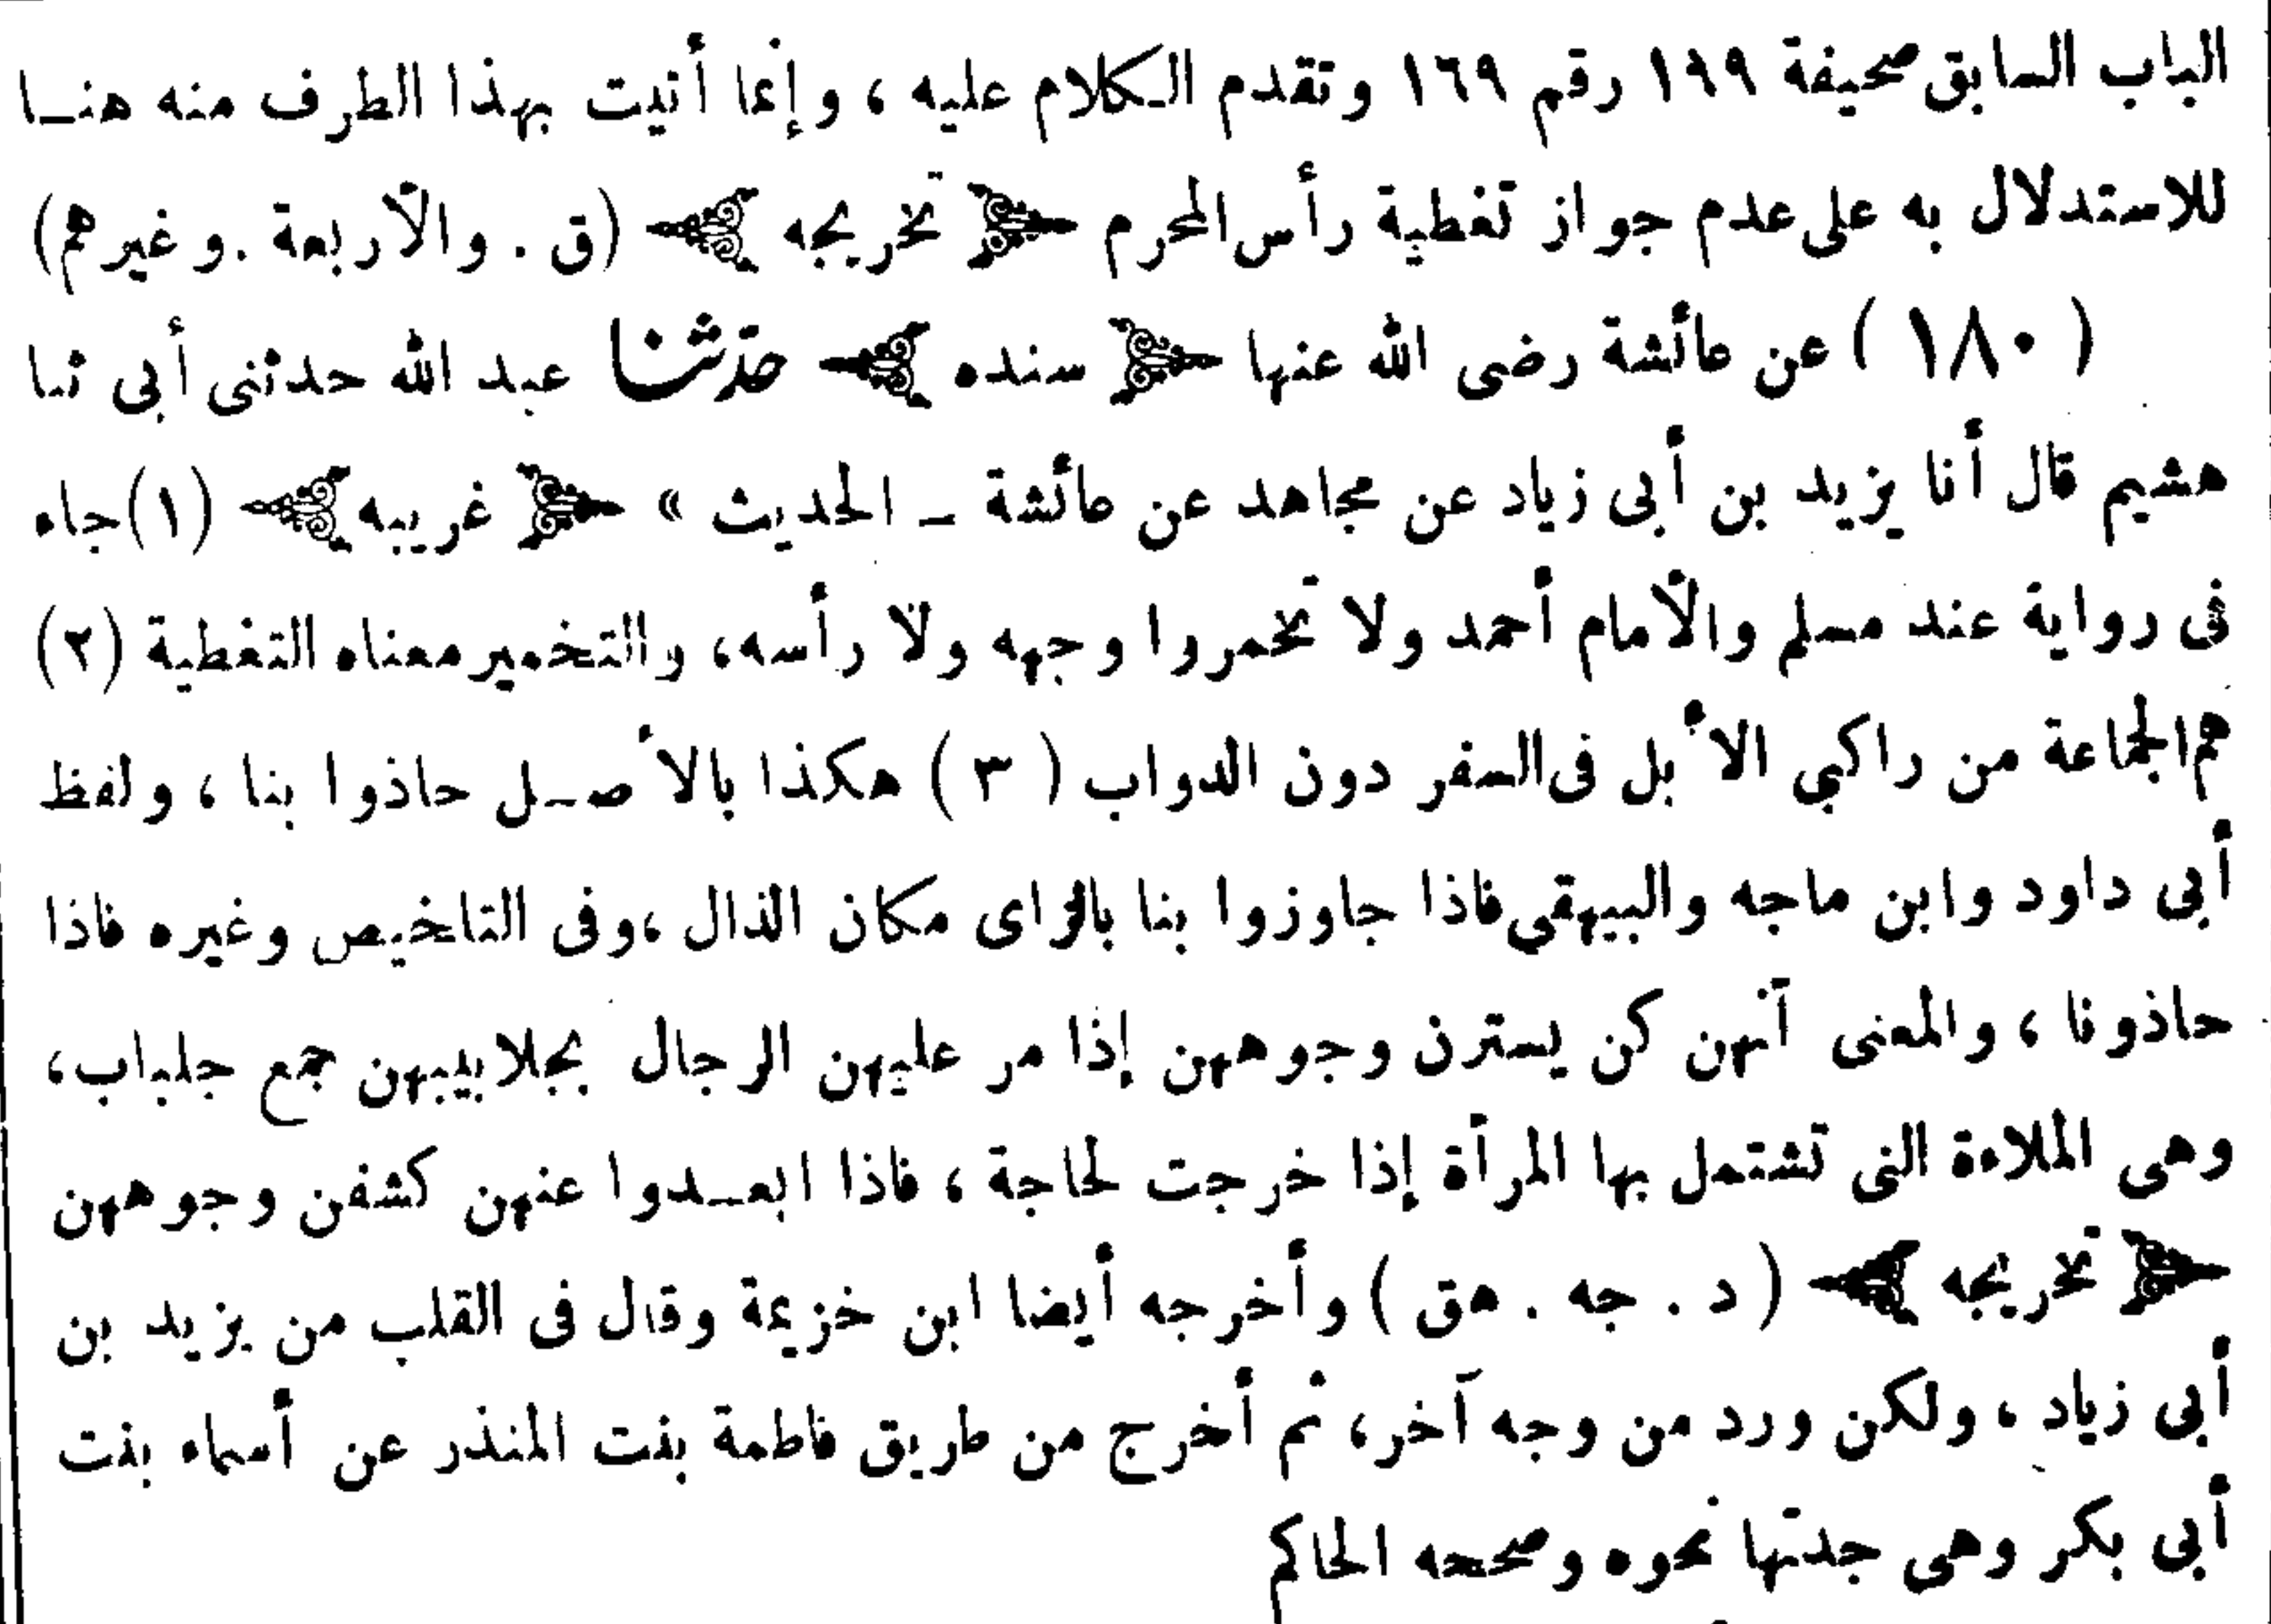 الباب السابق صحيفة ١٩٩ رقم ١٦٩ وتقدم الكلام عليه ، وإنما أتيت بهذا الطرف منه هنا
للاستدلال به على عدم جواز تغطية رأس المحرم ﴿ تخريجه ﴾ (ق . والأربعة . وغيرهم)
( ١٨٠ ) عن عائشة رضى الله عنها ﴿ سنده ﴾ حدثنا عبد الله حدثنى أبى ثنا
هشيم قال أنا يزيد بن أبى زياد عن مجاهد عن عائشة ـ الحديث » ﴿ غريبه ﴾ (١) جاء
فى رواية عند مسلم والأمام أحمد ولا تخمروا وجهه ولا رأسه، والتخمير معناه التغطية (٢)
هم الجماعة من راكبي الأبل فى السفر دون الدواب ( ٣ ) هكذا بالأصل حاذوا بنا ، ولفظ
أبى داود وابن ماجه والبيهقي فاذا جاوزوا بنا بالزاى مكان الذال ،وفى التلخيص وغيره فاذا
حاذونا ، والمعنى أنهن كن يسترن وجوههن إذا مر عليهن الرجال بجلابيبهن جمع جلباب،
وهى الملاءة التى تشتمل بها المرأة إذا خرجت لحاجة ، فاذا ابعدوا عنهن كشفن وجوههن
﴿ تخريجه ﴾ ( د . جه . هق ) وأخرجه أيضا ابن خزيمة وقال فى القلب من يزيد بن
أبى زياد ، ولكن ورد من وجه آخر، ثم أخرج من طريق فاطمة بنت المنذر عن أسماء بنت
أبى بكر وهى جدتها نحوه وصححه الحاكم